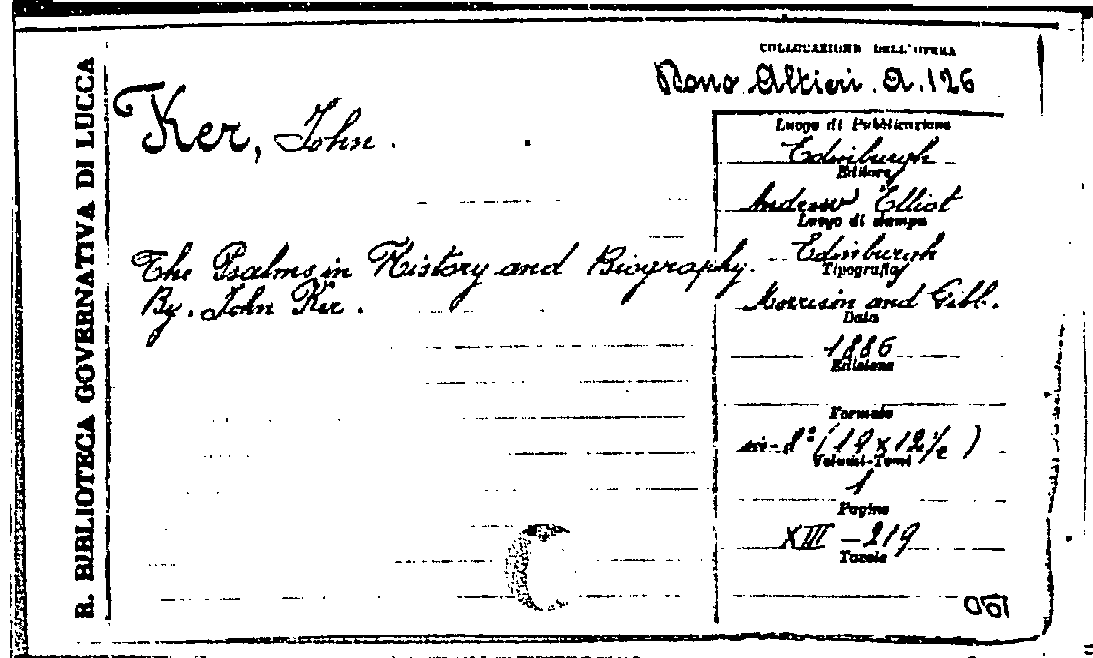 R. BIBLIOTECA GOVERNATIVA DI LUCCA
COLLOCAZIONE DELL'OPERA
Altieri. A. 126
Ker, John.
The Psalms in History and Biography.
By. John Ker.
Luogo di Pubblicazione
Edinburgh
Editore
Andrew Elliot
Luogo di stampa
Edinburgh
Tipografia
Morrison and Gibb.
Data
1886
Edizione
Formato
in-8° (19 x 12/c)
Volumi-Tomi
1
Pagine
XIII - 219
Tavole